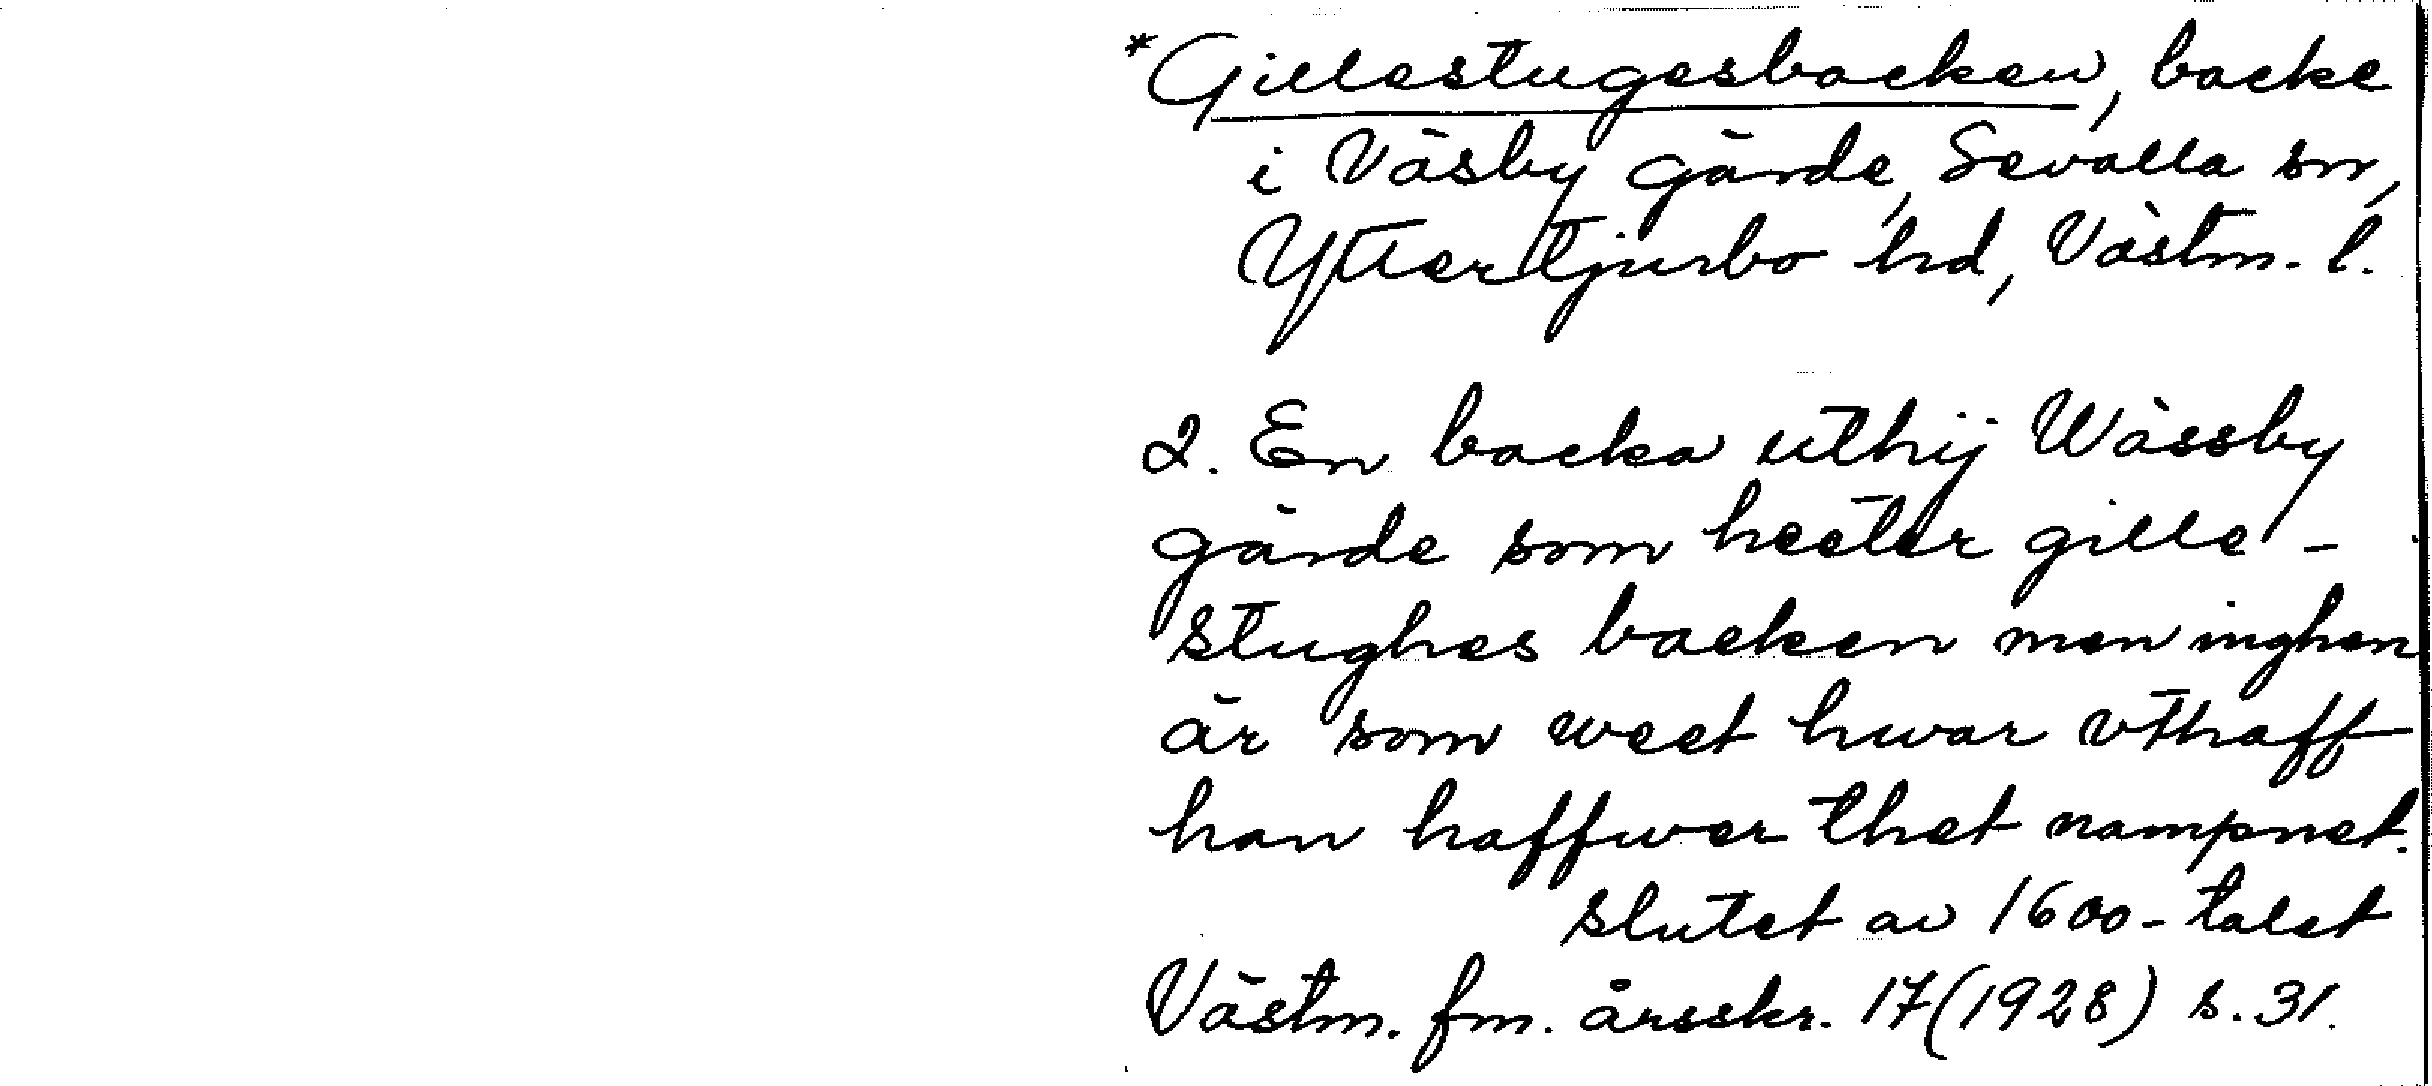 *Gillestugesbacken, backe
i Väsby gärde, Sevalla sn,
Yttertjurbo hd, Västm. l.
2. En backa uthij Wässby
gärde som heeter gille-
stughes backen men inghen
är som weet hwar vthaff
han haffwer thet nampnet.
slutet av 1600-talet
Västm. fm. årsskr. 17 (1928) s. 31.